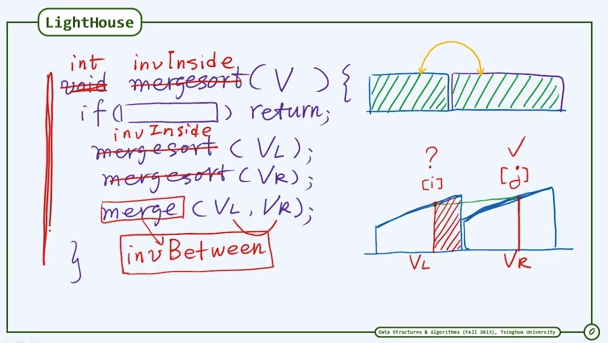 LightHouse
int invInside
void mergesort ( V ) {
if( ) return;
invInside
mergesort ( VL );
mergesort ( VR );
merge ( VL, VR );
invBetween
}
? ✓
[i] [j]
VL VR
Data Structures & Algorithms (Fall 2013), Tsinghua University
0